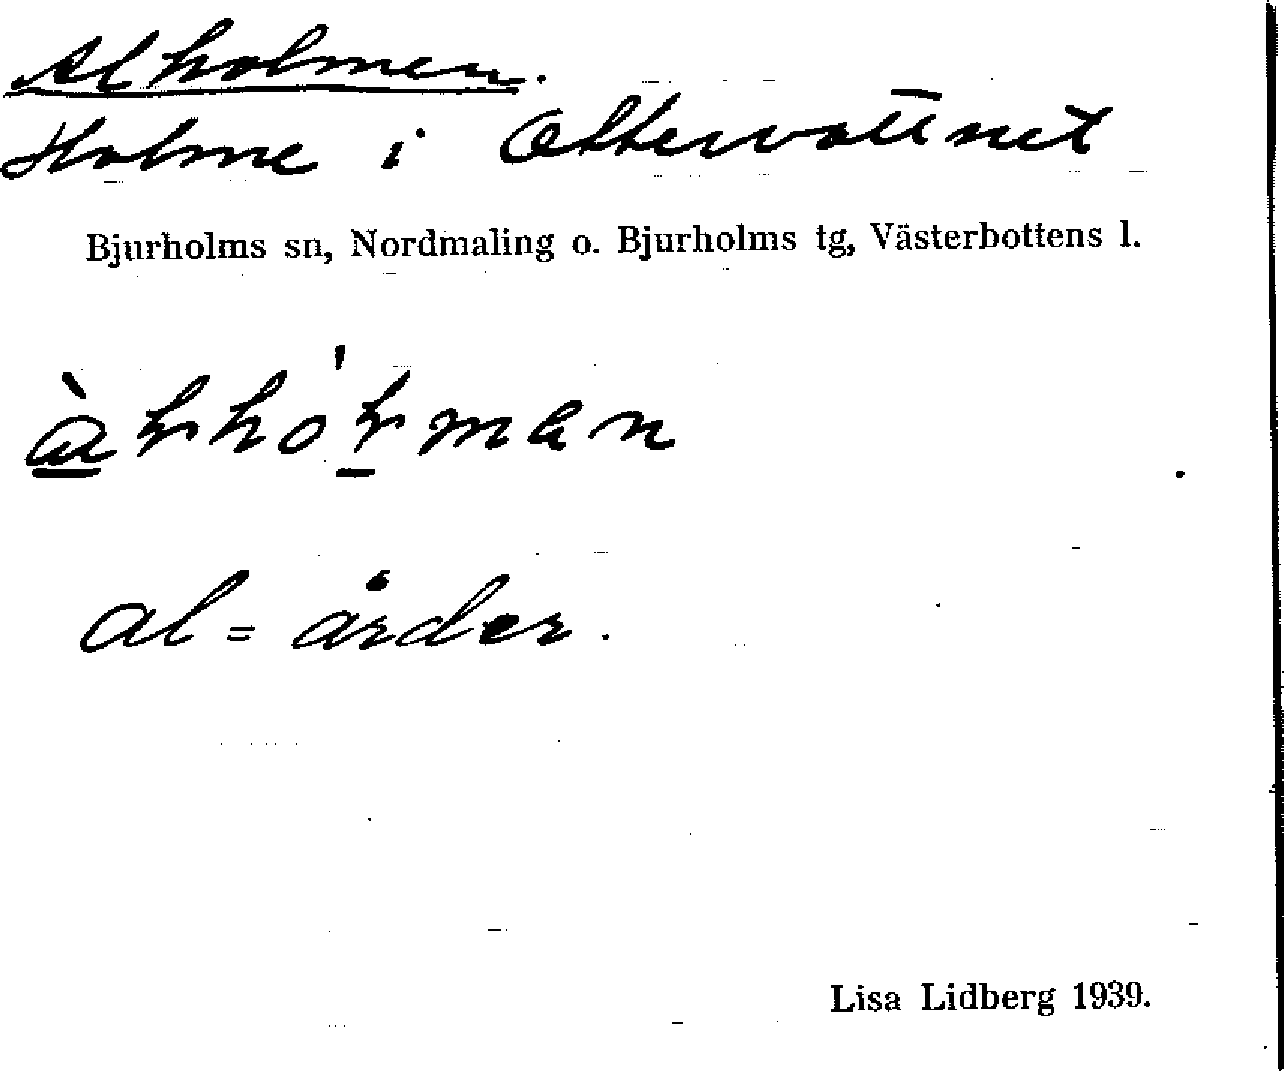 Alholmen.
Holme i Ottervattnet
Bjurholms sn, Nordmaling o. Bjurholms tg, Västerbottens l.
al = årder.
Lisa Lidberg 1939.